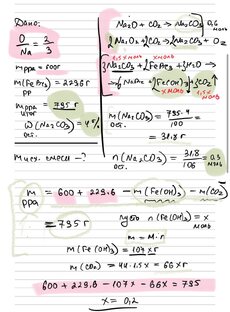 Дано:
O/Na = 2/3
m ppa = 600г
m(FeBr₃) = 229,6г
m ppa итог = 795г
ω(Na₂CO₃) ост. = 4%
m исх. смеси - ?
Na₂O + CO₂ → Na₂CO₃ 0,6 моль
2Na₂O₂ + 2CO₂ → 2Na₂CO₃ + O₂
3Na₂CO₃ + 2FeBr₃ + 3H₂O →
→ 6NaBr + 2Fe(OH)₃ + 3CO₂↑
x моль 1,5x моль
m(Na₂CO₃) ост. = 795·4/100 =
= 31,8г
n(Na₂CO₃) ост. = 31,8/106 = 0,3 моль
m ppa = 600 + 229,6 - m(Fe(OH)₃) - m(CO₂)
= 795г
пусть n(Fe(OH)₃) = x моль
m = M·n
m(Fe(OH)₃) = 107xг
m(CO₂) = 44·1,5x = 66xг
600 + 229,6 - 107x - 66x = 795
x = 0,2